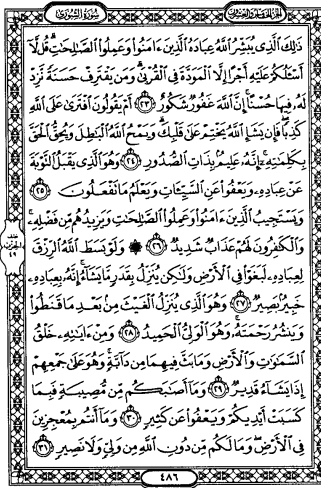 سُورَةُ الشُّورَىٰ
ذَٰلِكَ ٱلَّذِى يُبَشِّرُ ٱللَّهُ عِبَادَهُ ٱلَّذِينَ ءَامَنُوا۟ وَعَمِلُوا۟ ٱلصَّٰلِحَٰتِ ۗ قُل لَّآ
أَسْـَٔلُكُمْ عَلَيْهِ أَجْرًا إِلَّا ٱلْمَوَدَّةَ فِى ٱلْقُرْبَىٰ ۗ وَمَن يَقْتَرِفْ حَسَنَةً نَّزِدْ
لَهُۥ فِيهَا حُسْنًا ۚ إِنَّ ٱللَّهَ غَفُورٌ شَكُورٌ ٢٣ أَمْ يَقُولُونَ ٱفْتَرَىٰ عَلَى ٱللَّهِ
كَذِبًا ۖ فَإِن يَشَإِ ٱللَّهُ يَخْتِمْ عَلَىٰ قَلْبِكَ ۗ وَيَمْحُ ٱللَّهُ ٱلْبَٰطِلَ وَيُحِقُّ ٱلْحَقَّ
بِكَلِمَٰتِهِۦٓ ۚ إِنَّهُۥ عَلِيمٌۢ بِذَاتِ ٱلصُّدُورِ ٢٤ وَهُوَ ٱلَّذِى يَقْبَلُ ٱلتَّوْبَةَ
عَنْ عِبَادِهِۦ وَيَعْفُوا۟ عَنِ ٱلسَّيِّـَٔاتِ وَيَعْلَمُ مَا تَفْعَلُونَ ٢٥
وَيَسْتَجِيبُ ٱلَّذِينَ ءَامَنُوا۟ وَعَمِلُوا۟ ٱلصَّٰلِحَٰتِ وَيَزِيدُهُم مِّن فَضْلِهِۦ ۚ
وَٱلْكَٰفِرُونَ لَهُمْ عَذَابٌ شَدِيدٌ ٢٦ ۞ وَلَوْ بَسَطَ ٱللَّهُ ٱلرِّزْقَ
لِعِبَادِهِۦ لَبَغَوْا۟ فِى ٱلْأَرْضِ وَلَٰكِن يُنَزِّلُ بِقَدَرٍ مَّا يَشَآءُ ۚ إِنَّهُۥ بِعِبَادِهِۦ
خَبِيرٌۢ بَصِيرٌ ٢٧ وَهُوَ ٱلَّذِى يُنَزِّلُ ٱلْغَيْثَ مِنۢ بَعْدِ مَا قَنَطُوا۟
وَيَنشُرُ رَحْمَتَهُۥ ۚ وَهُوَ ٱلْوَلِىُّ ٱلْحَمِيدُ ٢٨ وَمِنْ ءَايَٰتِهِۦ خَلْقُ
ٱلسَّمَٰوَٰتِ وَٱلْأَرْضِ وَمَا بَثَّ فِيهِمَا مِن دَآبَّةٍ ۚ وَهُوَ عَلَىٰ جَمْعِهِمْ
إِذَا يَشَآءُ قَدِيرٌ ٢٩ وَمَآ أَصَٰبَكُم مِّن مُّصِيبَةٍ فَبِمَا
كَسَبَتْ أَيْدِيكُمْ وَيَعْفُوا۟ عَن كَثِيرٍ ٣٠ وَمَآ أَنتُم بِمُعْجِزِينَ
فِى ٱلْأَرْضِ ۖ وَمَا لَكُم مِّن دُونِ ٱللَّهِ مِن وَلِىٍّ وَلَا نَصِيرٍ ٣١
٤٨٦